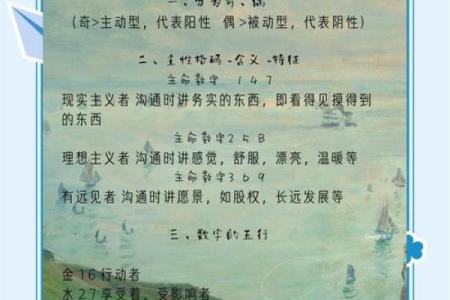 一、分为奇、偶
（奇>主动型，代表阳性 偶>被动型，代表阴性）
二、主性格码-含义-特征
主命数字 147
现实主义者 沟通时讲务实的东西，即看得见摸得到
的东西
主命数字258
理想主义者 沟通时讲感觉，舒服，漂亮，温暖等
主命数字369
有远见者 沟通时讲愿景，如股权，长远发展等
三、数字的五行
金 16 行动者
水 27 享受着、受影响者